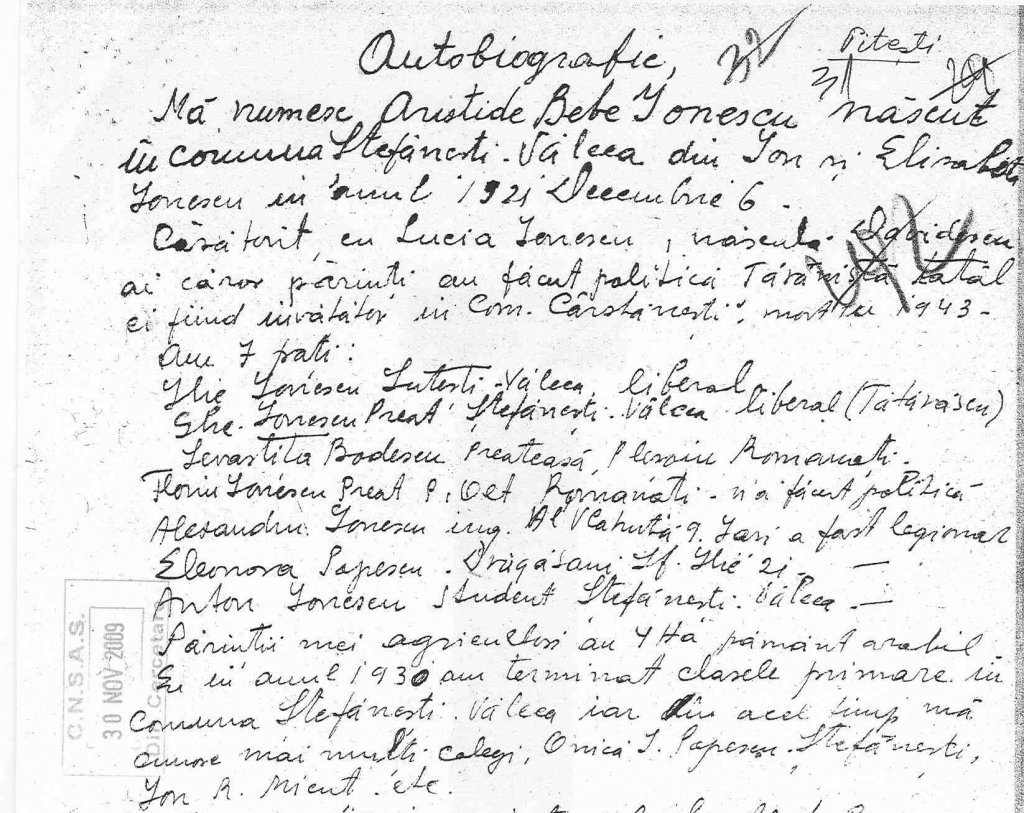 Autobiografie,
Pitești
31
Mă numesc Aristide Bebe Ionescu născut
în comuna Ștefănești-Vâlcea din Ion și Elisabeta
Ionescu în anul 1921 Decembrie 6.
Căsătorit cu Lucia Ionescu, născută Davidescu
ai căror părinți au făcut politică Țărănistă tatăl
ei fiind învățător în Com. Cârstănești, mort în 1943-
Am 7 frați:
Ilie Ionescu Șutești-Vâlcea, liberal
Ghe. Ionescu Preot Ștefănești-Vâlcea liberal (Tătărăscu)
Sevastița Bodescu Preoteasă, Pleșoiu Romanați.
Florin Ionescu Preot P. Olt Romanați - n'a făcut politică
Alexandru Ionescu ing. Al Vlahuță 9. Iași a fost legionar
Eleonora Popescu - Drăgășani Sf. Ilie 21 - —
Anton Ionescu student Ștefănești-Vâlcea - —
Părinții mei agricultori au 4 Ha pământ arabil -
Eu în anul 1930 am terminat clasele primare în
Comuna Ștefănești-Vâlcea iar din acel timp mă
mai mulți colegi, Onică I. Popescu - Ștefănești,
Ion R. etc.
C.N.S.A.S.
30 NOV 2009
Dir. Cercetare